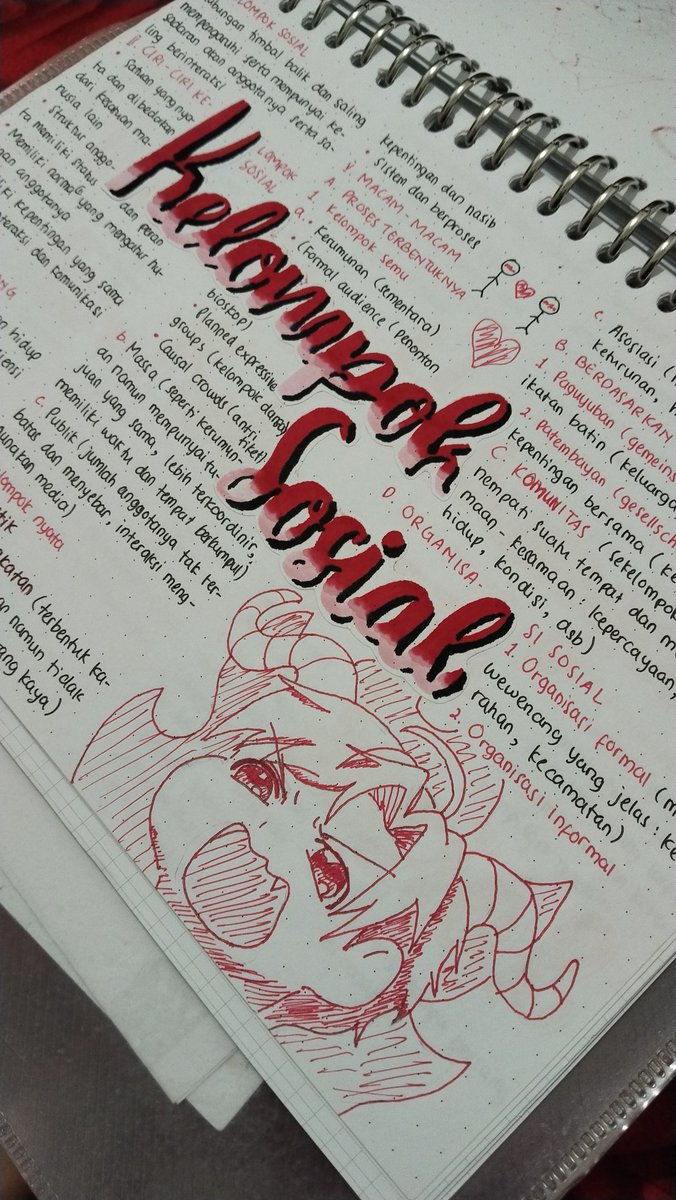 KELOMPOK SOSIAL
timbal balik dan saling
mempengaruhi serta mempunyai ke-
sadaran akan anggotanya serta sa-
ling berinteraksi
II. CIRI-CIRI KE-
LOMPOK
SOSIAL
Satuan yang nya-
ta dan dibedakan
dari kesatuan ma-
nusia lain
• Struktur anggo-
ta memiliki status dan peran
• Memiliki norma yang mengatur hu-
anggotanya
kepentingan yang sama
interaksi dan komunikasi
hidup
Kelompok
Sosial
kepentingan dan nasib
• Sistem dan berproses
V. MACAM-MACAM
A. PROSES TERBENTUKNYA
1. Kelompok semu
a. Kerumunan (sementara)
• (Formal audience (penonton
bioskop)
• Planned expressive
groups (kelompok dansa)
• Causal crowds (antri
tiket)
b. Massa (seperti kerumun-
an namun mempunyai tu-
juan yang sama, lebih terkoordinir,
memiliki waktu dan tempat berkumpul)
c. Publik (jumlah anggotanya tak ter-
batas dan menyebar, interaksi meng-
gunakan media)
kelompok nyata
(terbentuk ka-
namun tidak
kaya)
c. Asosiasi
keturunan,
B. BERDASARKAN
1. Paguyuban
ikatan batin
2. Patembayan
kepentingan bersama
C. KOMUNITAS (sekelompok
nempati suatu tempat dan
maan-kesamaan: kepercayaan,
hidup, kondisi, dsb)
D. ORGANISA-
SI SOSIAL
1. Organisasi formal
wewenang yang jelas:
rahan, kecamatan)
2. Organisasi informal